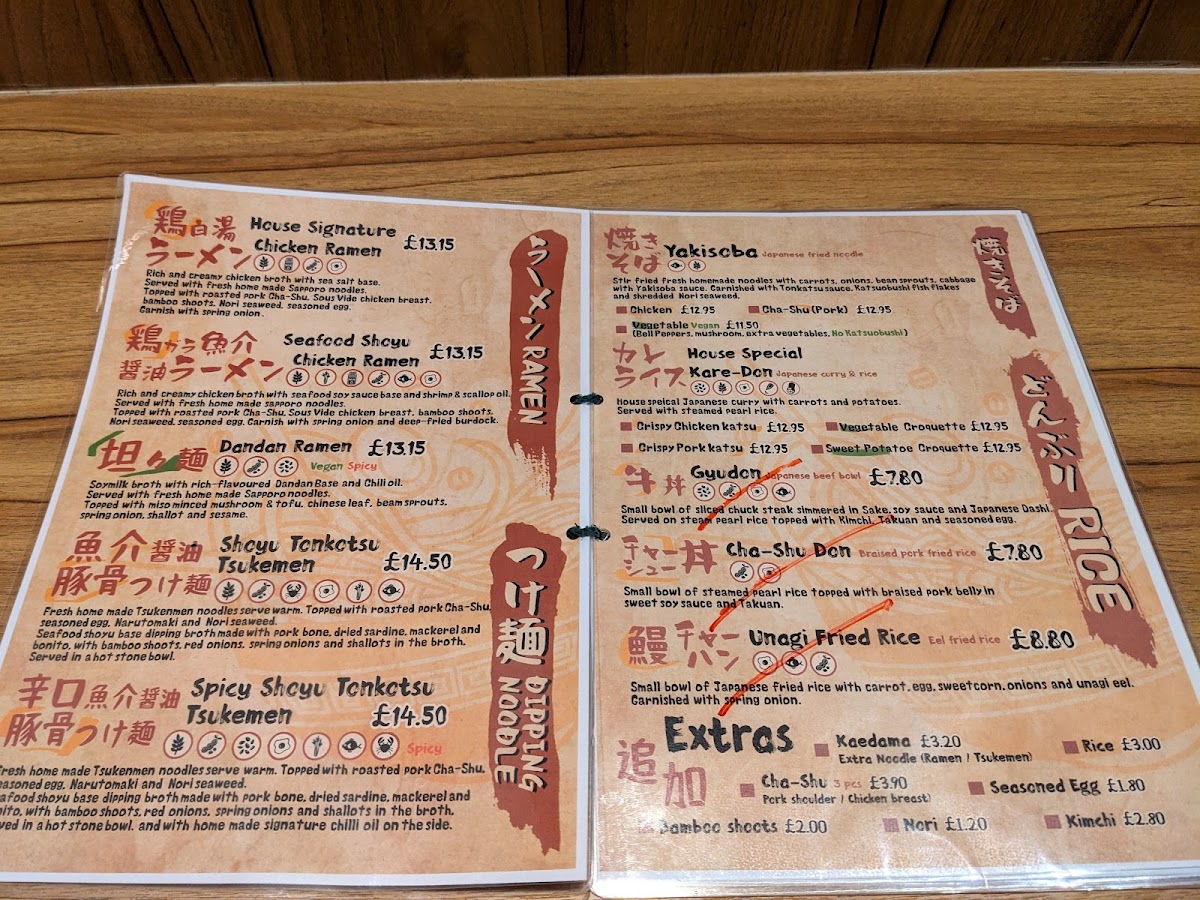 鶏白湯 House Signature
ラーメン Chicken Ramen £13.15
Rich and creamy chicken broth with sea salt base.
Served with fresh home made Sapporo noodles.
Topped with roasted pork Cha-Shu, Sous Vide chicken breast,
bamboo shoots, Nori seaweed, seasoned egg.
Garnish with spring onion.
鶏から魚介 Seafood Shoyu
醤油ラーメン Chicken Ramen £13.15
Rich and creamy chicken broth with seafood soy sauce base and shrimp & scallop oil.
Served with fresh home made sapporo noodles.
Topped with roasted pork Cha-Shu, Sous Vide chicken breast, bamboo shoots,
Nori seaweed, seasoned egg, Garnish with spring onion and deep-fried burdock.
坦々麺 Dandan Ramen £13.15
Vegan Spicy
Soymilk broth with rich-flavoured Dandan Base and Chili oil.
Served with fresh home made Sapporo noodles.
Topped with miso minced mushroom & tofu, chinese leaf, beam sprouts,
spring onion, shallot and sesame.
ラーメン RAMEN
魚介醤油 Shoyu Tonkotsu
豚骨つけ麺 Tsukemen £14.50
Fresh home made Tsukenmen noodles serve warm. Topped with roasted pork Cha-Shu,
seasoned egg, Narutomaki and Nori seaweed.
Seafood shoyu base dipping broth made with pork bone, dried sardine, mackerel and
bonito, with bamboo shoots, red onions, spring onions and shallots in the broth.
Served in a hot stone bowl.
辛口魚介醤油 Spicy Shoyu Tonkotsu
豚骨つけ麺 Tsukemen £14.50
Spicy
Fresh home made Tsukenmen noodles serve warm. Topped with roasted pork Cha-Shu,
seasoned egg, Narutomaki and Nori seaweed.
eafood shoyu base dipping broth made with pork bone, dried sardine, mackerel and
nito, with bamboo shoots, red onions, spring onions and shallots in the broth,
ved in a hot stone bowl. and with home made signature chilli oil on the side.
つけ麺 DIPPING NOODLE
焼きそば Yakisoba Japanese fried noodle
Stir fried fresh homemade noodles with carrots, onions, bean sprouts, cabbage
with Yakisoba sauce. Garnished with Tonkatsu sauce, Katsuobushi fish flakes
and shredded Nori seaweed.
Chicken £12.95 Cha-Shu (Pork) £12.95
Vegetable Vegan £11.50
(Bell Peppers, mushroom, extra vegetables, No Katsuobushi)
焼きそば
カレー House Special
ライス Kare-Don Japanese curry & rice
House speical Japanese curry with carrots and potatoes.
Served with steamed pearl rice.
Crispy Chicken katsu £12.95 Vegetable Croquette £12.95
Crispy Pork katsu £12.95 Sweet Potatoe Croquette £12.95
牛丼 Gyudon Japanese beef bowl £7.80
Small bowl of sliced chuck steak simmered in Sake, soy sauce and Japanese Dashi.
Served on steam pearl rice topped with Kimchi, Takuan and seasoned egg.
チャーシュー丼 Cha-Shu Don Braised pork fried rice £7.80
Small bowl of steamed pearl rice topped with braised pork belly in
sweet soy sauce and Takuan.
鰻チャーハン Unagi Fried Rice Eel fried rice £8.80
Small bowl of Japanese fried rice with carrot, egg, sweetcorn, onions and unagi eel.
Garnished with spring onion.
どんぶり RICE
追加 Extras
Kaedama £3.20 Rice £3.00
Extra Noodle (Ramen / Tsukemen)
Cha-Shu 3 pcs £3.90 Seasoned Egg £1.80
Pork shoulder / Chicken breast)
Bamboo shoots £2.00 Nori £1.20 Kimchi £2.80